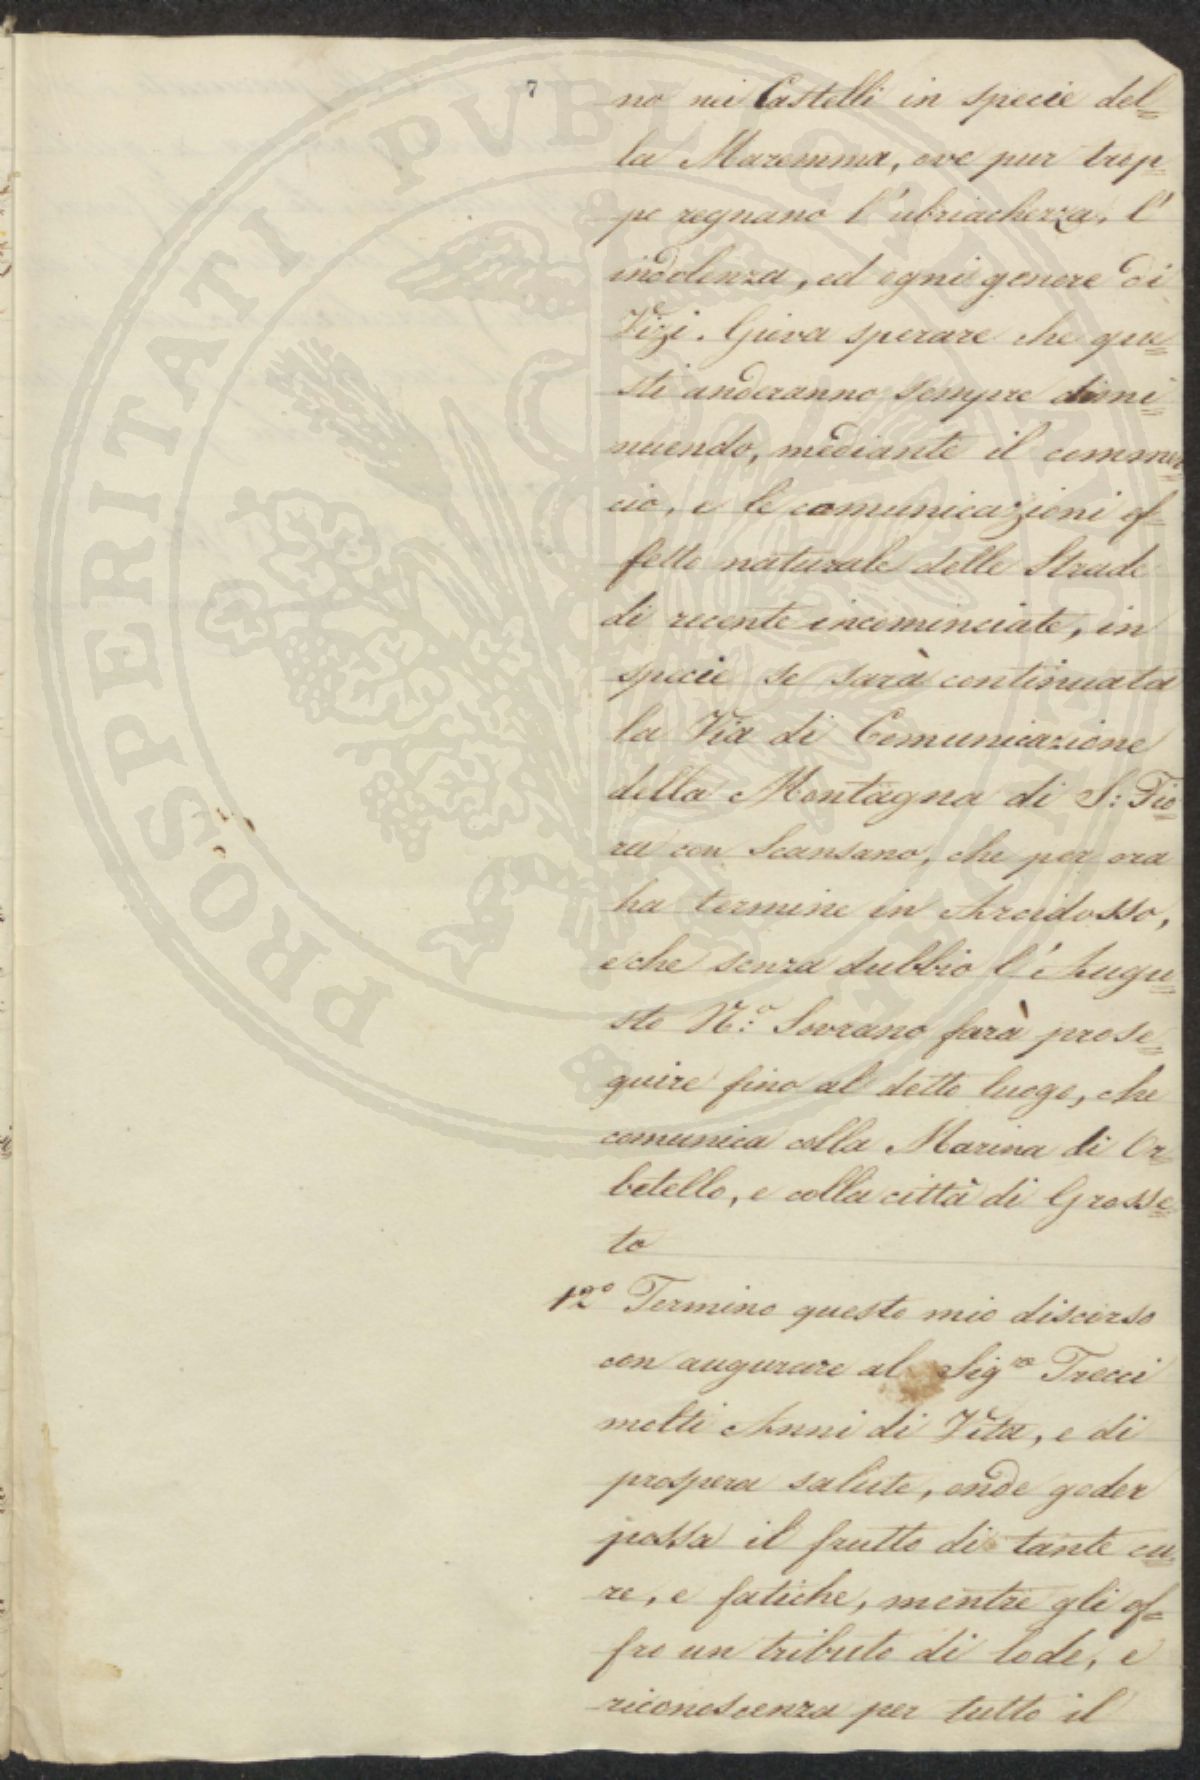 7
no nei Castelli in specie del=
la Maremma, ove pur trop=
po regnano l'ubriachezza, l'
indolenza, ed ogni genere di
Vizi. Giova sperare che que=
sti anderanno sempre dimi=
nuendo, mediante il commer=
cio, e le comunicazioni ef=
fetto naturale delle Strade
di recente incominciate, in
specie se sarà continuata
la Via di Comunicazione
della Montagna di S: Fio=
ra con Scansano, che per ora
ha termine in Arcidosso,
e che senza dubbio l'Augu=
sto N:o Sovrano farà prose=
guire fino al detto luogo, che
comunica colla Marina di Or=
betello, e colla città di Grosse=
to
12° Termino questo mio discorso
con augurare al Sigre Trecci
molti Anni di Vita, e di
prospera salute, onde goder
possa il frutto di tante cu=
re, e fatiche, mentre gli of=
fro un tributo di lode, e
riconoscenza per tutto il
PROSPERITATI PUBLICAE AUGENDAE